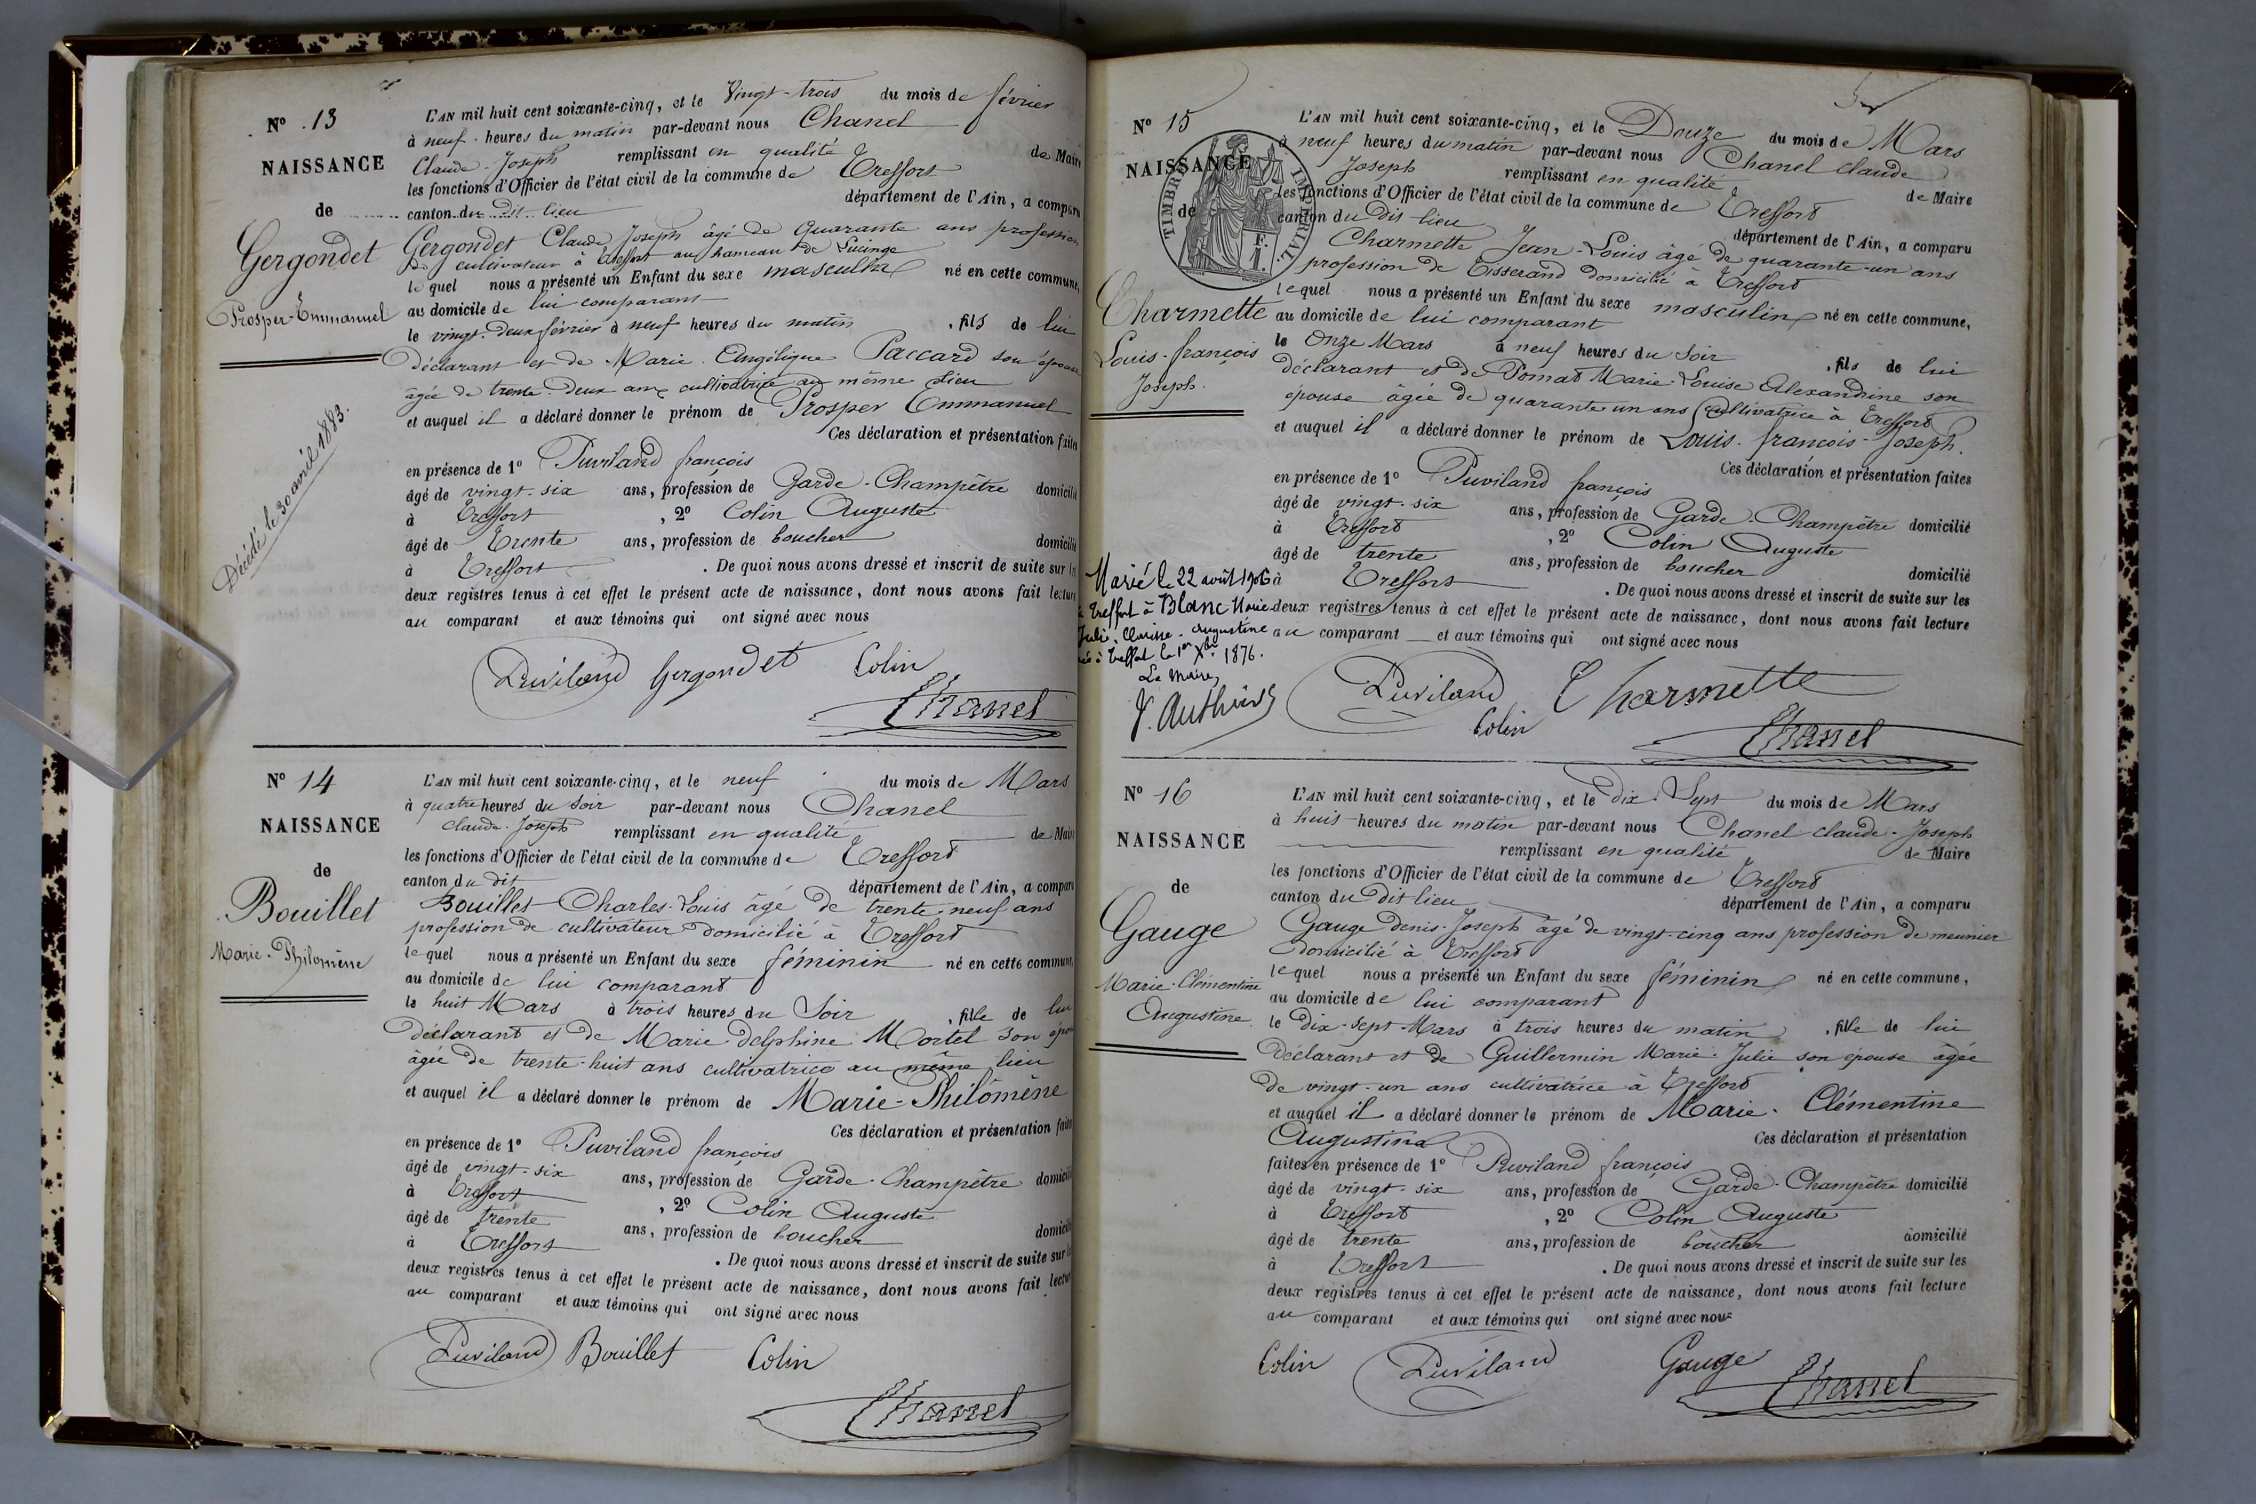 N° 13
NAISSANCE
de
Gergondet
Prosper-Emmanuel
Décédé le 30 avril 1883.
L'AN mil huit cent soixante-cinq, et le Vingt-trois du mois de février
à neuf heures du matin par-devant nous Chanel
Claude-Joseph remplissant en qualité de Maire
les fonctions d'Officier de l'état civil de la commune de Treffort
canton du dit lieu département de l'Ain, a comparu
Gergondet Claude Joseph âgé de quarante ans profession
de cultivateur à Treffort au hameau de Lucinge
lequel nous a présenté un Enfant du sexe masculin né en cette commune,
au domicile de lui comparant
le vingt-deux février à neuf heures du matin , fils de lui
déclarant et de Marie Angélique Paccard son épouse
âgée de trente-deux ans cultivatrice au même lieu
et auquel il a déclaré donner le prénom de Prosper Emmanuel
Ces déclaration et présentation faites
en présence de 1° Puviland françois
âgé de vingt-six ans, profession de Garde-Champêtre domicilié
à Treffort , 2° Colin Auguste
âgé de Trente ans, profession de boucher domicilié
à Treffort . De quoi nous avons dressé et inscrit de suite sur les
deux registres tenus à cet effet le présent acte de naissance, dont nous avons fait lecture
au comparant et aux témoins qui ont signé avec nous
Puviland Gergondet Colin
Chanel
N° 14
NAISSANCE
de
Bouillet
Marie-Philomène
L'AN mil huit cent soixante-cinq, et le neuf du mois de Mars
à quatre heures du soir par-devant nous Chanel
Claude-Joseph remplissant en qualité de Maire
les fonctions d'Officier de l'état civil de la commune de Treffort
canton du dit département de l'Ain, a comparu
Bouillet Charles-Louis âgé de trente-neuf ans
profession de cultivateur domicilié à Treffort
lequel nous a présenté un Enfant du sexe féminin né en cette commune,
au domicile de lui comparant
le huit Mars à trois heures du Soir , fille de lui
déclarant et de Marie-delphine Mortel son épouse
âgée de trente-huit ans cultivatrice au même lieu
et auquel il a déclaré donner le prénom de Marie-Philomène
Ces déclaration et présentation faites
en présence de 1° Puviland françois
âgé de vingt-six ans, profession de Garde-Champêtre domicilié
à Treffort , 2° Colin Auguste
âgé de trente ans, profession de boucher domicilié
à Treffort . De quoi nous avons dressé et inscrit de suite sur les
deux registres tenus à cet effet le présent acte de naissance, dont nous avons fait lecture
au comparant et aux témoins qui ont signé avec nous
Puviland Bouillet Colin
Chanel
N° 15
NAISSANCE
de
TIMBRE IMPÉRIAL
Charmette
Louis-françois
Joseph.
Marié le 22 août 1906
à Treffort à Blanc Marie
Julie, Clarisse-Augustine
née à Treffort le 1er Xbre 1876.
Le Maire,
L'AN mil huit cent soixante-cinq, et le Douze du mois de Mars
à neuf heures du matin par-devant nous Chanel claude
Joseph remplissant en qualité de Maire
les fonctions d'Officier de l'état civil de la commune de Treffort
canton du dit lieu département de l'Ain, a comparu
Charmette Jean-Louis âgé de quarante-un ans
profession de Tisserand domicilié à Treffort
lequel nous a présenté un Enfant du sexe masculin né en cette commune,
au domicile de lui comparant
le Onze Mars à neuf heures du Soir , fils de lui
déclarant et de Pomat Marie-Louise Alexandrine son
épouse âgée de quarante-un ans Cultivatrice à Treffort
et auquel il a déclaré donner le prénom de Louis-françois-Joseph.
Ces déclaration et présentation faites
en présence de 1° Puviland françois
âgé de vingt-six ans, profession de Garde-Champêtre domicilié
à Treffort , 2° Colin Auguste
âgé de trente ans, profession de boucher domicilié
à Treffort . De quoi nous avons dressé et inscrit de suite sur les
deux registres tenus à cet effet le présent acte de naissance, dont nous avons fait lecture
au comparant et aux témoins qui ont signé avec nous
Puviland Charmette
Colin
Chanel
N° 16
NAISSANCE
de
Gauge
Marie-Clémentine
Augustine
L'AN mil huit cent soixante-cinq, et le dix-Sept du mois de Mars
à huit heures du matin par-devant nous Chanel claude-Joseph
remplissant en qualité de Maire
les fonctions d'Officier de l'état civil de la commune de Treffort
canton du dit lieu département de l'Ain, a comparu
Gauge denis-Joseph âgé de vingt-cinq ans profession de meunier
domicilié à Treffort
lequel nous a présenté un Enfant du sexe féminin né en cette commune,
au domicile de lui comparant
le dix-sept Mars à trois heures du matin , fille de lui
déclarant et de Guillermin Marie-Julie son épouse âgée
de vingt-un ans cultivatrice à Treffort
et auquel il a déclaré donner le prénom de Marie-Clémentine
Augustine Ces déclaration et présentation
faites en présence de 1° Puviland françois
âgé de vingt-six ans, profession de Garde-Champêtre domicilié
à Treffort , 2° Colin Auguste
âgé de trente ans, profession de boucher domicilié
à Treffort . De quoi nous avons dressé et inscrit de suite sur les
deux registres tenus à cet effet le présent acte de naissance, dont nous avons fait lecture
au comparant et aux témoins qui ont signé avec nous
Colin Puviland Gauge
Chanel